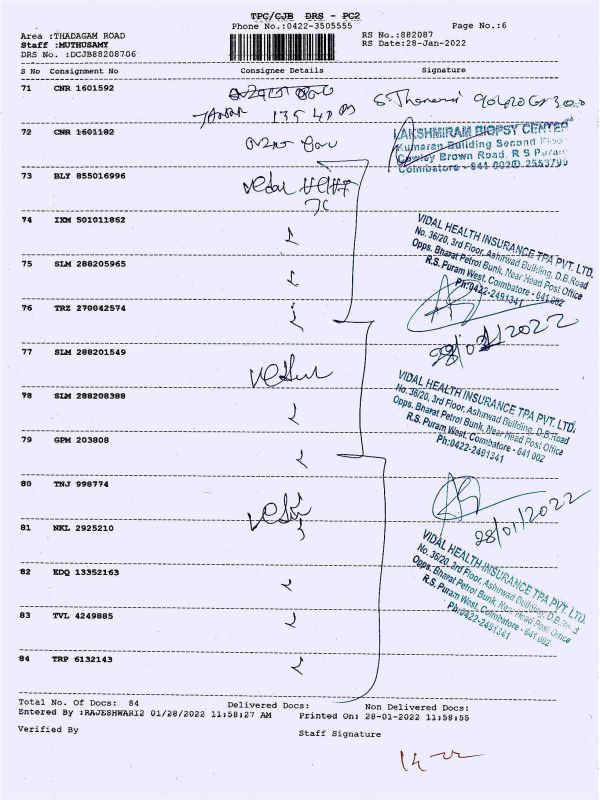 TPC/CJB DRS - PC2
Phone No.:0422-3505555
Page No.:6
Area :THADAGAM ROAD
RS No.:882087
Staff :MUTHUSAMY
RS Date:28-Jan-2022
DRS No. :DCJB88208706
S No Consignment No Consignee Details Signature
71 CNR 1601592
72 CNR 1601182
LAKSHMIRAM BIOPSY CENTER
Kumaran Building Second Floor
Cowley Brown Road, R S Puram
Coimbatore - 641 002
73 BLY 855016996
74 IXM 501011862
VIDAL HEALTH INSURANCE TPA PVT. LTD.
No. 36/20, 3rd Floor, Ashirwad Building, D.B.Road
Opps. Bharat Petrol Bunk, Near Head Post Office
R.S. Puram West, Coimbatore - 641 002
Ph:0422-2491341
75 SLM 288205965
76 TRZ 270042574
28/01/2022
77 SLM 288201549
VIDAL HEALTH INSURANCE TPA PVT. LTD.
No. 36/20, 3rd Floor, Ashirwad Building, D.B.Road
Opps. Bharat Petrol Bunk, Near Head Post Office
R.S. Puram West, Coimbatore - 641 002
Ph:0422-2491341
78 SLM 288208388
79 GPM 203808
80 TNJ 998774
28/01/2022
81 NKL 2925210
VIDAL HEALTH INSURANCE TPA PVT. LTD.
No. 36/20, 3rd Floor, Ashirwad Building, D.B.Road
Opps. Bharat Petrol Bunk, Near Head Post Office
R.S. Puram West, Coimbatore - 641 002
Ph:0422-2491341
82 EDQ 13352163
83 TVL 4249885
84 TRP 6132143
Total No. Of Docs: 84 Delivered Docs: Non Delivered Docs:
Entered By :RAJESHWARI2 01/28/2022 11:58:27 AM Printed On: 28-01-2022 11:58:55
Verified By
Staff Signature